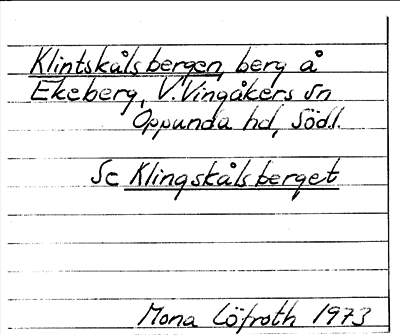 Klintskålsbergen, berg å
Ekeberg, V. Vingåkers sn
Oppunda hd, Södl.
Se Klingskålsberget
Mona Löfroth 1973